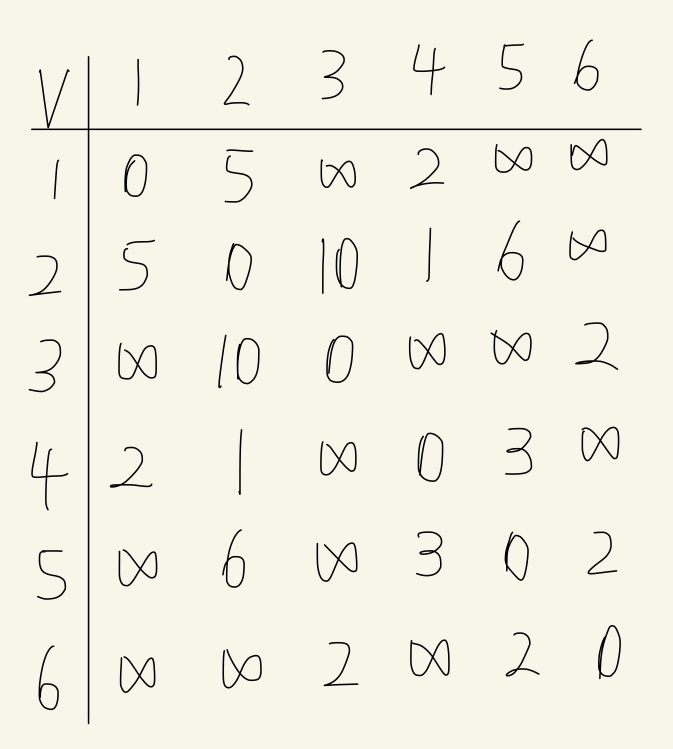 V 1 2 3 4 5 6
1 0 5 ∞ 2 ∞ ∞
2 5 0 10 1 6 ∞
3 ∞ 10 0 ∞ ∞ 2
4 2 1 ∞ 0 3 ∞
5 ∞ 6 ∞ 3 0 2
6 ∞ ∞ 2 ∞ 2 0